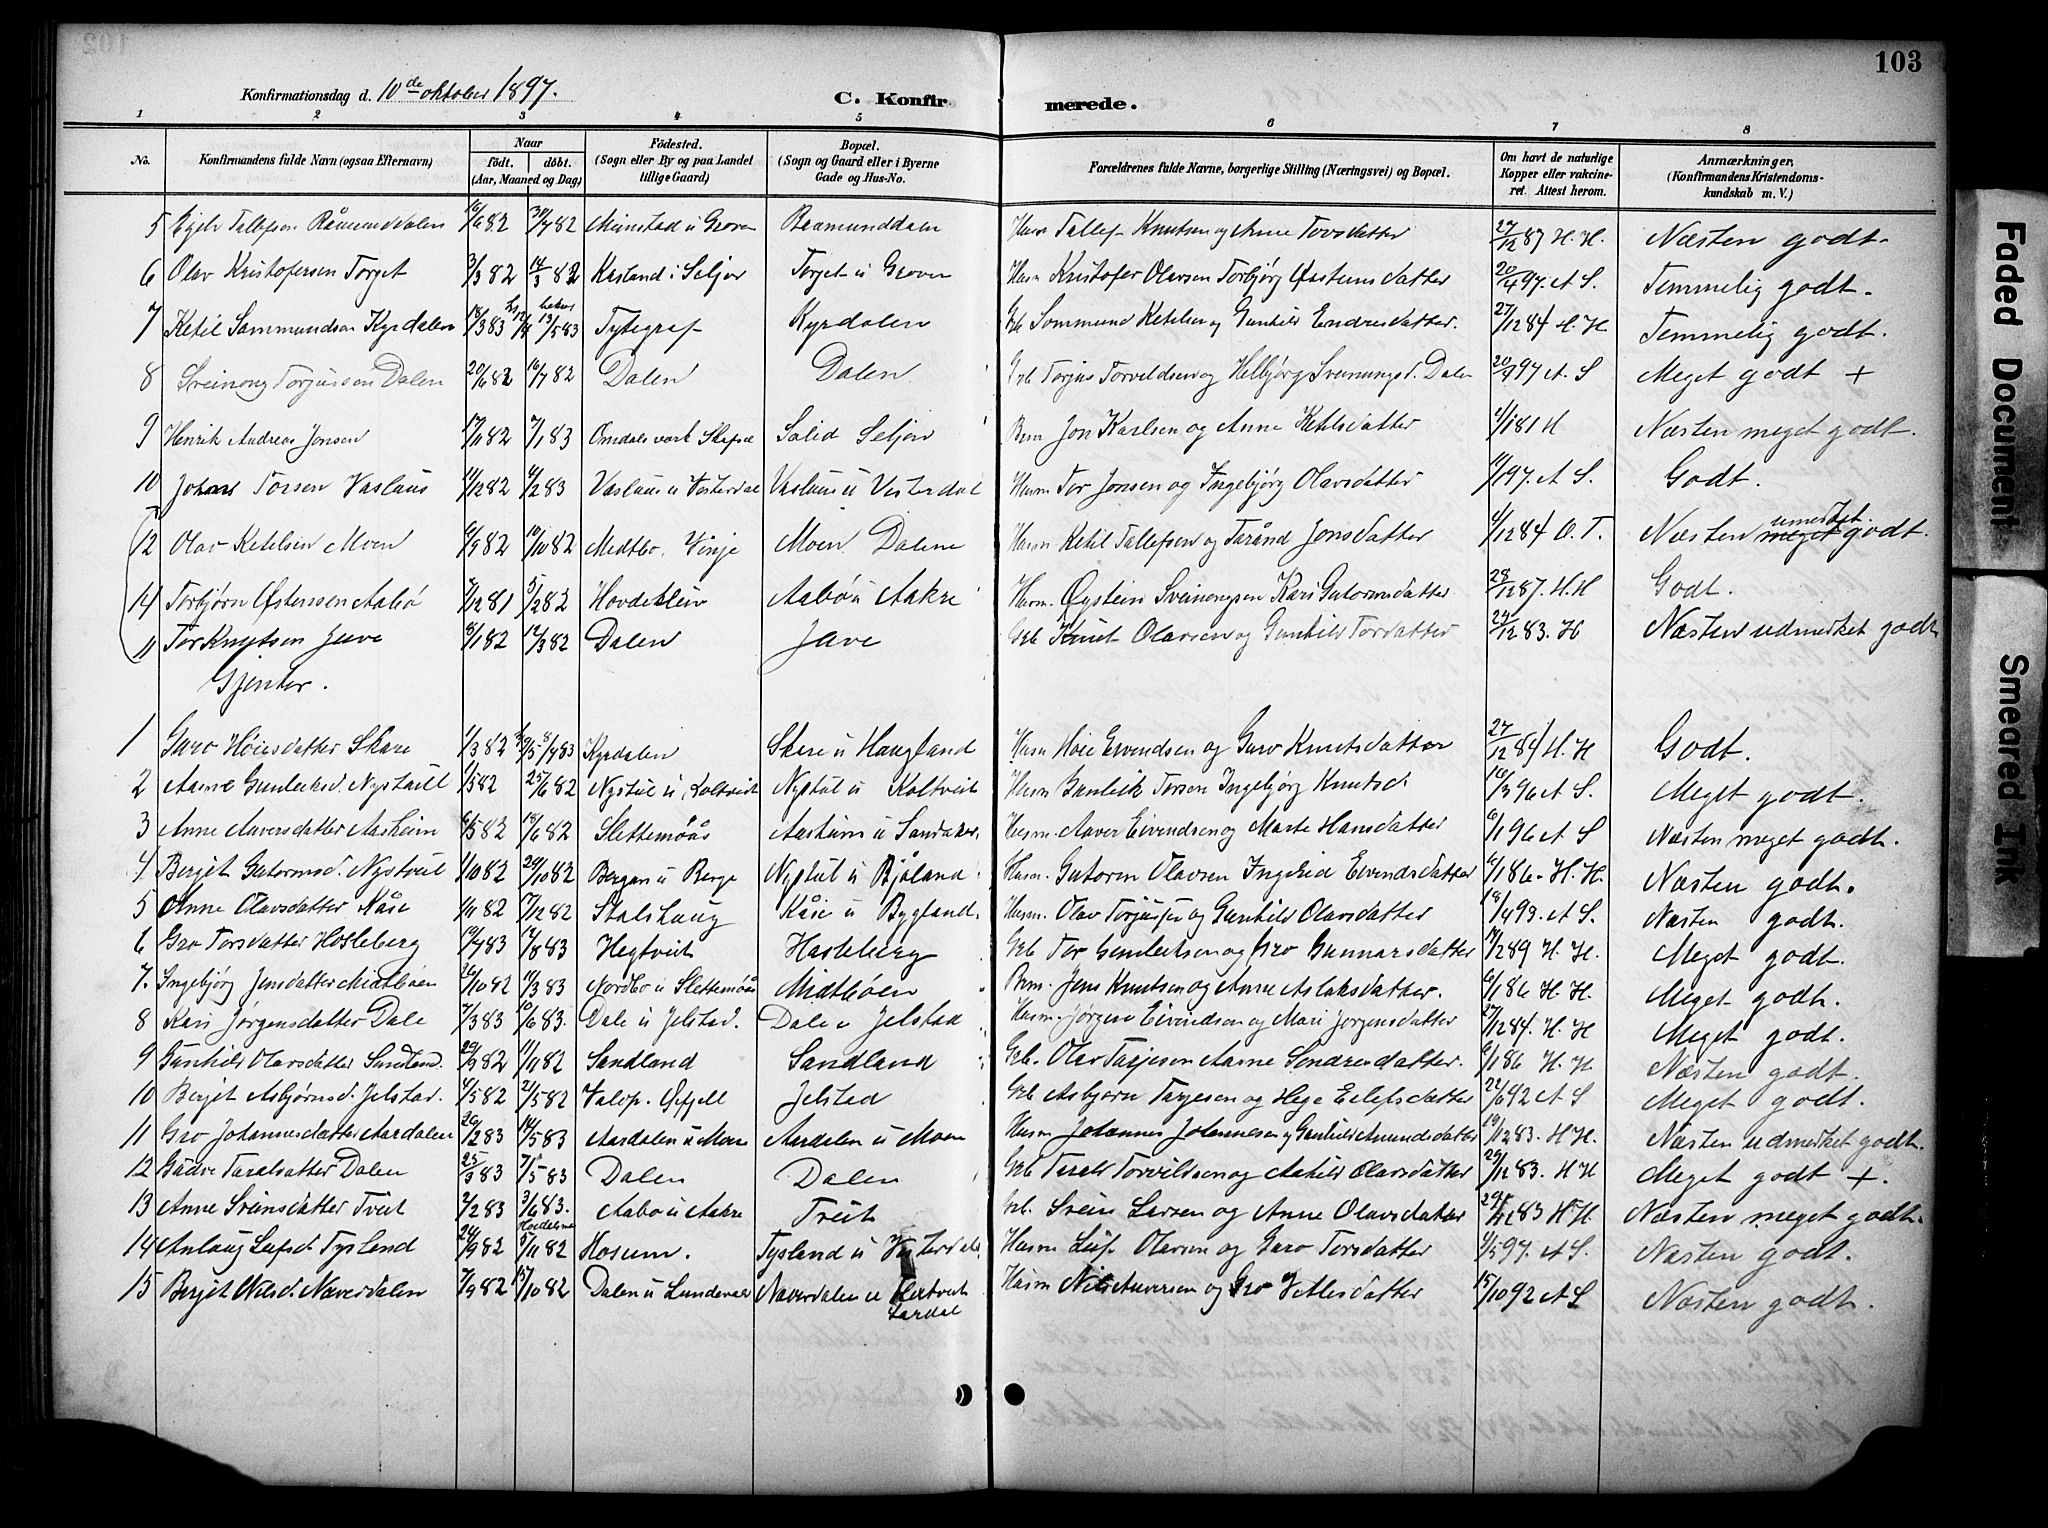 103
Konfirmationsdag d. 10de oktober 1897.
C. Konfirmerede.
1 2 3 4 5 6 7 8
No. Konfirmandens fulde Navn (ogsaa Efternavn) Naar födt. döbt. (Aar, Maaned og Dag) Födested. (Sogn eller By og paa Landet tillige Gaard) Bopæl. (Sogn og Gaard eller i Byerne Gade og Hus-No. Forældrenes fulde Navne, borgerlige Stilling (Næringsvei) og Bopæl. Om havt de naturlige Kopper eller vaccineret. Attest herom. Anmærkninger, (Konfirmandens Kristendomskundskab m. V.)
5 Tallefsen 16/6 82 30/7 82 Husm Tallef Knutsen og Anne Torsdatter 27/12 87 H. H. Næsten godt.
6 Olav Kristofersen Torget 3/3 82 14/3 82 Kasland i Seljor Torget u Groven Husm Kristofer Olavsen Torbjørg Østensdatter 20/4 97. A S. Temmelig godt.
7 Ketil Sammundsen Kyrdalen 18/3 83 13/5 83 Tytegraf Kyrdalen Grb Sommund Ketilsen og Gunhild Endresdatter. 27/12 84 H. H Temmelig godt.
8 Sveinong Torjussen Dalen 20/6 82 16/7 82 Dalen Dalen Grb Torjus Torvildsen og Helbjørg Sveinungsd. Dalen 20/4 97 A. S Meget godt +
9 Henrik Andreas Jonsen 17/11 82 7/1 83 Omdalsverk Skafse Solid Seljor Bem Jon Karlsen og Anne Ketilsdatter 4/1 81 H Næsten meget godt.
10 Johans Torsen Vaslaus 11/12 82 4/2 83 Vaslaus u Vesterdal Vaslaus u Vesterdal Husm Tor Jonsen og Ingebjørg Olavsdatter 11/1 97. A S. Godt.
12 Olav Ketilsen Moen 6/9 82 10/10 82 Medtbø. Vinje Moen Dalene Husm Ketil Tallefsen og Taránd Jonsdatter 4/12 84 O. T. Næsten meget umerket godt.
14 Torbjörn Østensen Aabö 7/12 81 5/2 82 Hovdeklein Aabö u Aakre Husm. Øystein Sveinongsen Kari Gutormsdatter 28/12 87. H. H Godt.
11 Tor Knutsen Jave 8/1 82 12/3 82 Dalen Jave Grb Knut Olavsen og Gunhild Torsdatter 24/12 83. H Næsten udmerket godt
Gjenter.
1 Guro Høiesdatter Skare 1/3 82 8/4 83 Kyrdalen Skare u Haugland Husm Høie Eivendsen og Guro Knutsdatter 27/12 84 H. H Godt.
2 Aasne Gunleiksd. Nystuil 1/5 82 25/6 82 Nystul u Koltveit Nystul u Koltveit Husm Gunleik Torsen Ingebjørg Knutsd. 16/3 96 A S. Meget godt.
3 Anne Aaversdatter Aasheim 6/5 82 18/6 82 Slettemöås Aasheim u Sandaker. Husm. Aaver Eivendsen og Marte Hansdatter 6/1 96 A S Næsten meget godt.
4 Bergit Gutormsd. Nystuil 1/10 82 29/10 82 Bergan u Berge Nystul u Bjåland Husm. Gutorm Olavsen Ingerid Eivendsdatter 6/1 86. H. H. Næsten godt.
5 Anne Olavsdatter Kåse 1/11 82 7/12 82 Stalshaug Kåse u Bygland. Husm. Olav Torjussen Gunhild Olavsdatter 18/4 93. A S. Næsten godt.
6 Gro Torsdatter Hosleberg 19/7 83 12/8 83 Hegtveit Hasleberg Grb Tor Gunleiksen og Gro Gunnarsdatter 14/2 89 H. H. Meget godt.
7. Ingebjørg Jensdatter Midtböen 26/10 82 11/3 83 Nordbø u Slettemöås Midtböen Bem. Jens Knutsen og Anne Aslaksdatter. 6/1 86 H. H. Meget godt.
8 Kari Jørgensdatter Dale 7/3 83 10/6 83. Dale u Jelstad. Dale u Jelstad Husm. Jörgen Eivindsen og Mari Jorgensdatter 27/12 84. H. H Meget godt.
9 Gunhild Olavsdatter Sandland. 29/9 82 11/11 82 Sandland Sandland Grb. Olav Tarjesen Aasne Sondresdatter. 6/1 86 H. H Næsten godt.
10 Bergit Asbjørnsd. Jelstad. 4/5 82 21/5 82 Valop. Øfjell Jelstad Grb Asbjørn Tarjesen og Hege Eilefsdatter 22/6 92 A S Meget godt.
11 Gro Johannesdatter Aardalen 26/2 83 14/5 83 Aardalen u Moen Aardalen u Moen Husm Johannes Johannesen og Gunhild Amundsdatter 19/12 83. H H. Næsten udmerket godt.
12 Gudve Taralsatter Dalen 25/3 83 7/5 83 Dalen Dalen Grb Tarald Torvildsen og Aahild Olavsdatter 29/12 83. H H Meget godt +.
13 Anne Sveinsdatter Tveit 2/2 83 3/6 83. Aabö u Aakre Tveit Grb. Svein Larsen og Anne Olavsdatter 29/12 83 H H. Næsten meget godt.
14 Anlaug Leifsd. Tysland 24/9 82 5/11 82 Hosum. Tysland u Vesterdal Husm Leif Olavsen og Guro Torsdatter 9/5 97. A S. Næsten godt.
15 Bergit Nilsd. Naverdalen 7/9 82 15/10 82 Dalen u Lundevall Naverdalen u Hextveit Lardal Husm Nils Auversen og Gro Vetlesdatter 15/10 92 A S Næsten godt.
Faded Document.
Smeared Ink